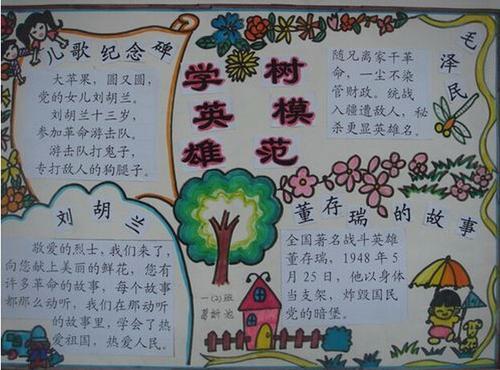 儿歌纪念碑
大苹果，圆又圆，
党的女儿刘胡兰。
刘胡兰十三岁，
参加革命游击队。
游击队打鬼子，
专打敌人的狗腿子。
学英雄
树模范
毛泽民
随兄离家干革
命，一尘不染
管财政。统战
入疆遭敌人，秘
杀更显英雄名。
刘胡兰
敬爱的烈士，我们来了，
向您献上美丽的鲜花，您有
许多革命的故事，每个故事
都那么动听，我们在那动听
的故事里，学会了热
爱祖国，热爱人民。
董存瑞的故事
全国著名战斗英雄
董存瑞，1948年5
月25日，他以身体
当支架，炸毁国民
党的暗堡。
一(2)班